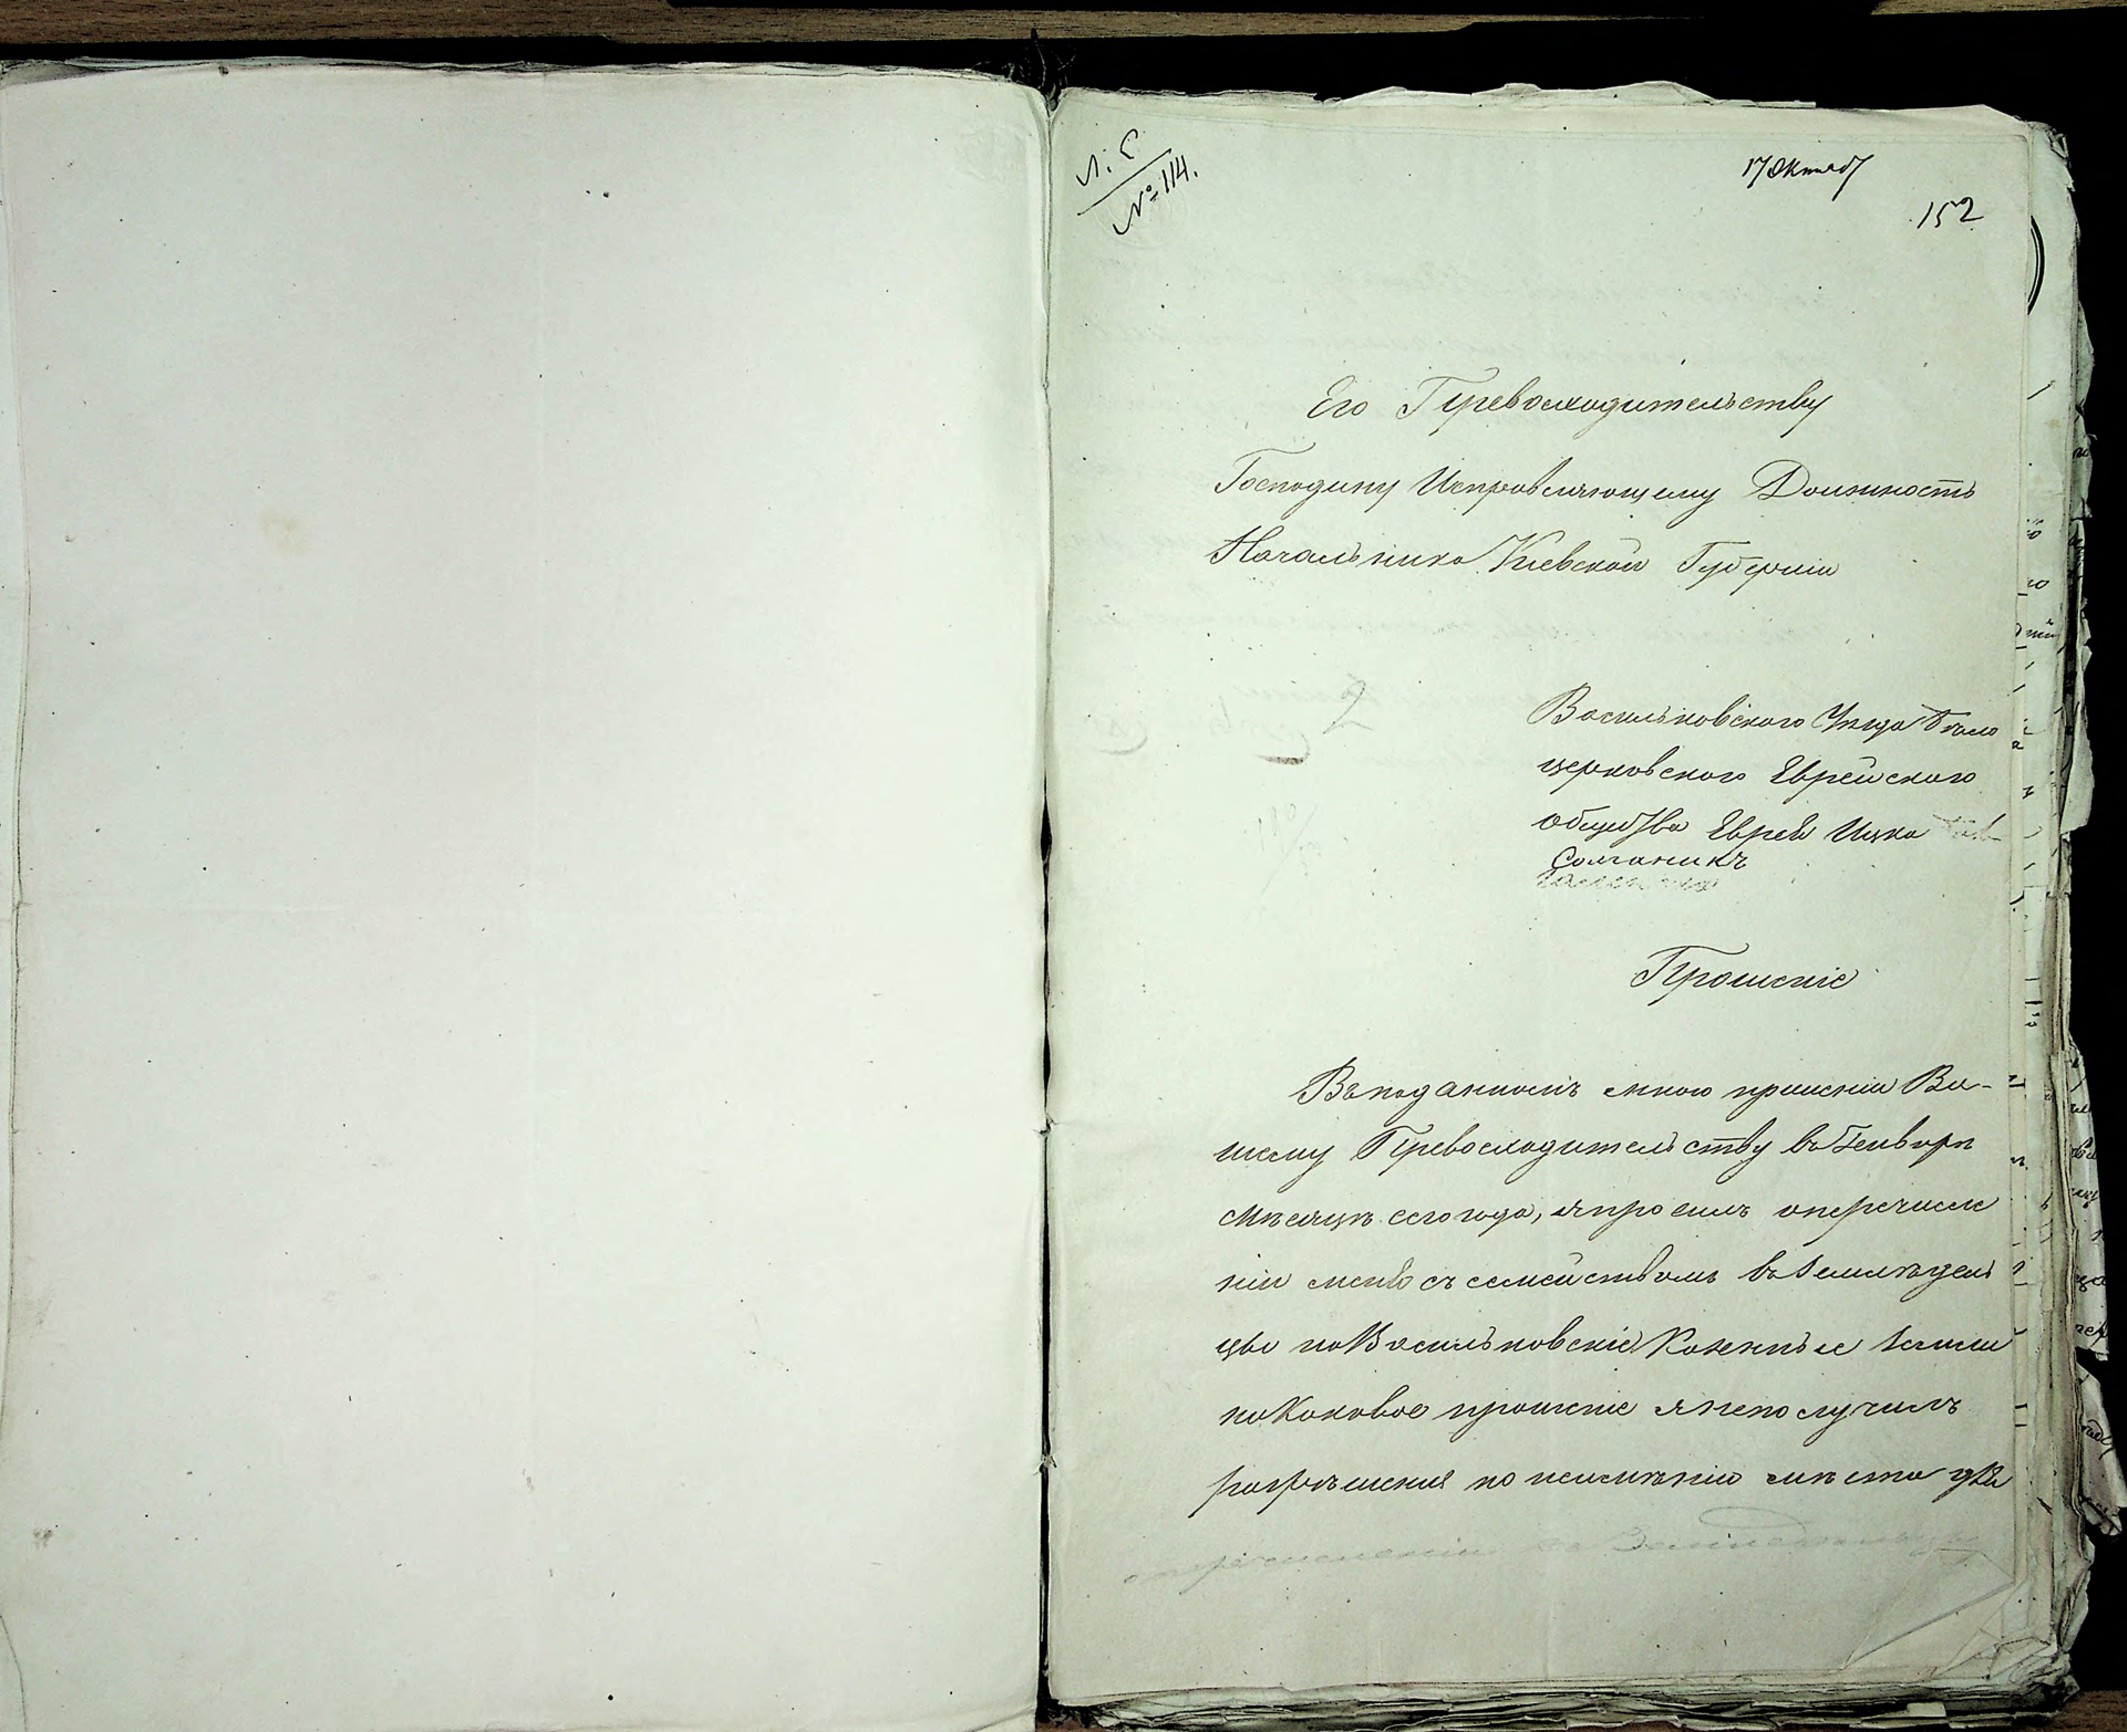 Л. С
№ 114.
17 Октяб
152
Его Превосходительству
Господину Исправляющему Должность
Начальника Киевской Губернии
Васильковского Уезда Бѣло
церковского Еврейского
общества Еврея Ицка
Салганикъ
Прошеніе
Въ поданномъ мною прошеніи Ва-
шему Превосходительству въ Генварѣ
мѣсяцѣ сего года, я просилъ о перечисле
ніи меня съ семействомъ въ Земледель
цы на Васильковскіе Казенные земли
на каковое прошение я не получилъ
разрѣшения по неимѣнію места для
о перечислении въ Земледельцы